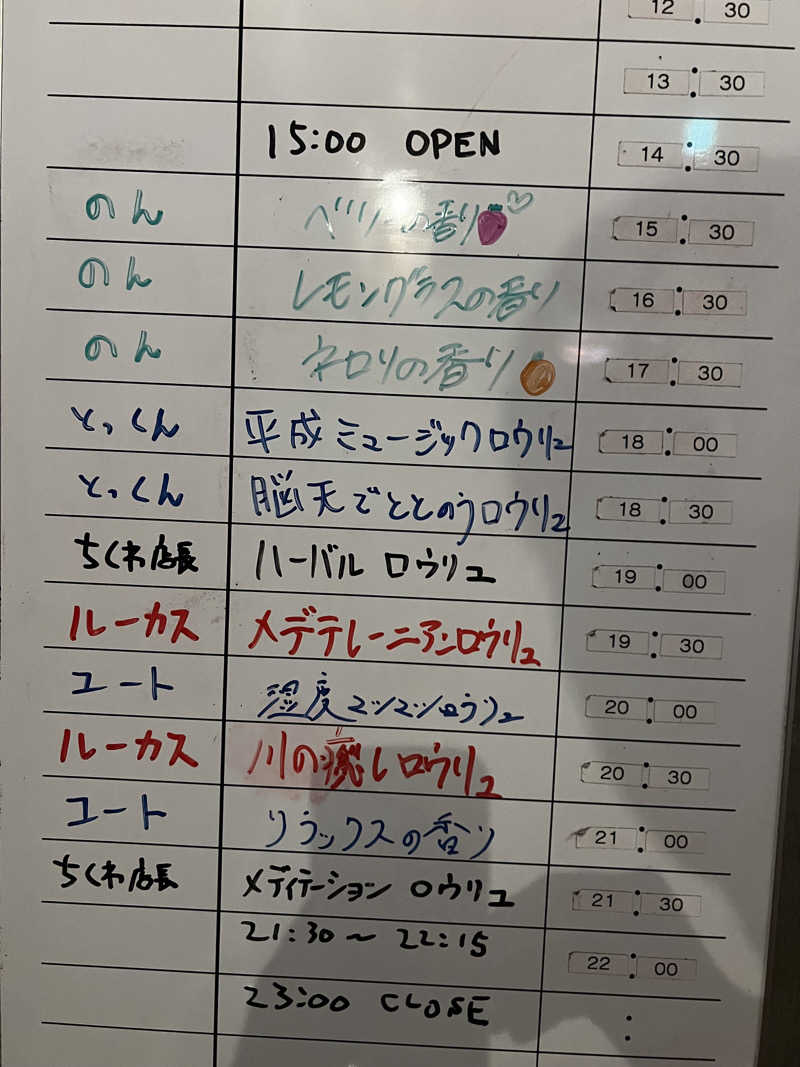 12 : 30
13 : 30
15:00 OPEN 14 : 30
のん ベリーの香り 15 : 30
のん レモングラスの香り 16 : 30
のん ネロリの香り 17 : 30
とっくん 平成ミュージックロウリュ 18 : 00
とっくん 脳天でととのうロウリュ 18 : 30
ちくわ店長 ハーバル ロウリュ 19 : 00
ルーカス メデテレーニアンロウリュ 19 : 30
ユート 湿度マンマンロウリュ 20 : 00
ルーカス 川の癒しロウリュ 20 : 30
ユート リラックスの香り 21 : 00
ちくわ店長 メディテーション ロウリュ 21 : 30
21:30〜22:15 22 : 00
23:00 CLOSE :